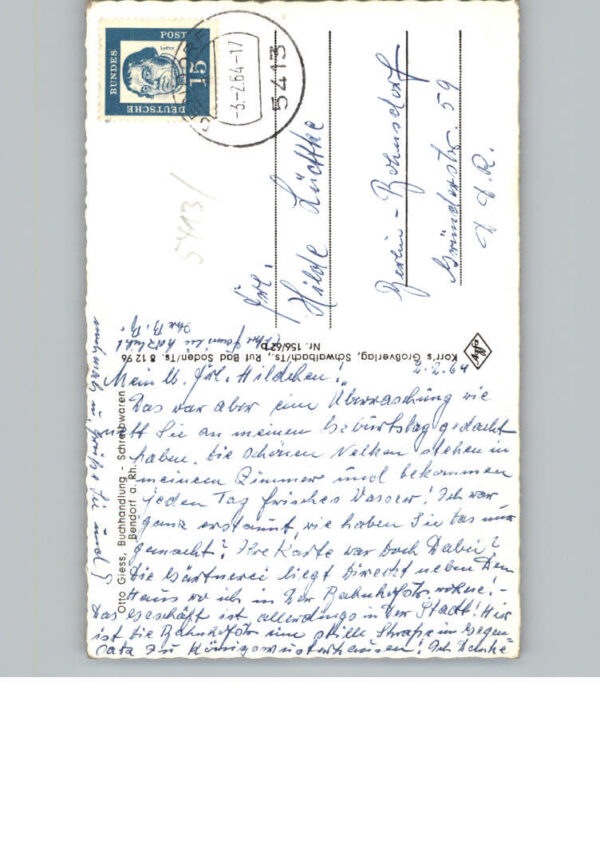 DEUTSCHE
BUNDES
POST
15
Luther
-3.-2.64-17
5413
5413/
Frl.
Hilde Lüdtke
Berlin-Bohnsdorf
Gründerstr. 59
D.D.R.
Korr's Großverlag, Schwalbach/Ts., Ruf Bad Soden/Ts. 8 12 96
Nr. 156/62 b
Agfa
Otto Giess, Buchhandlung - Schreibwaren
Bendorf a. Rh.
2.2.64
Mein lb. Frl. Hildchen!
Das war aber eine Überraschung wie
nett Sie an meinen Geburtstag gedacht
haben. Die schönen Nelken stehen in
meinem Zimmer und bekommen
jeden Tag frisches Wasser! Ich war
ganz erstaunt, wie haben Sie das nur
gemacht? Ihre Karte war doch dabei?
Die Gärtnerei liegt direkt neben dem
Haus wo ich in der Bahnhofstr. wohne! -
Das Geschäft ist allerdings in der Stadt! Hier
ist die Bahnhofstr. eine stille Straße im Gegen-
satz zu Königswusterhausen! Ich danke